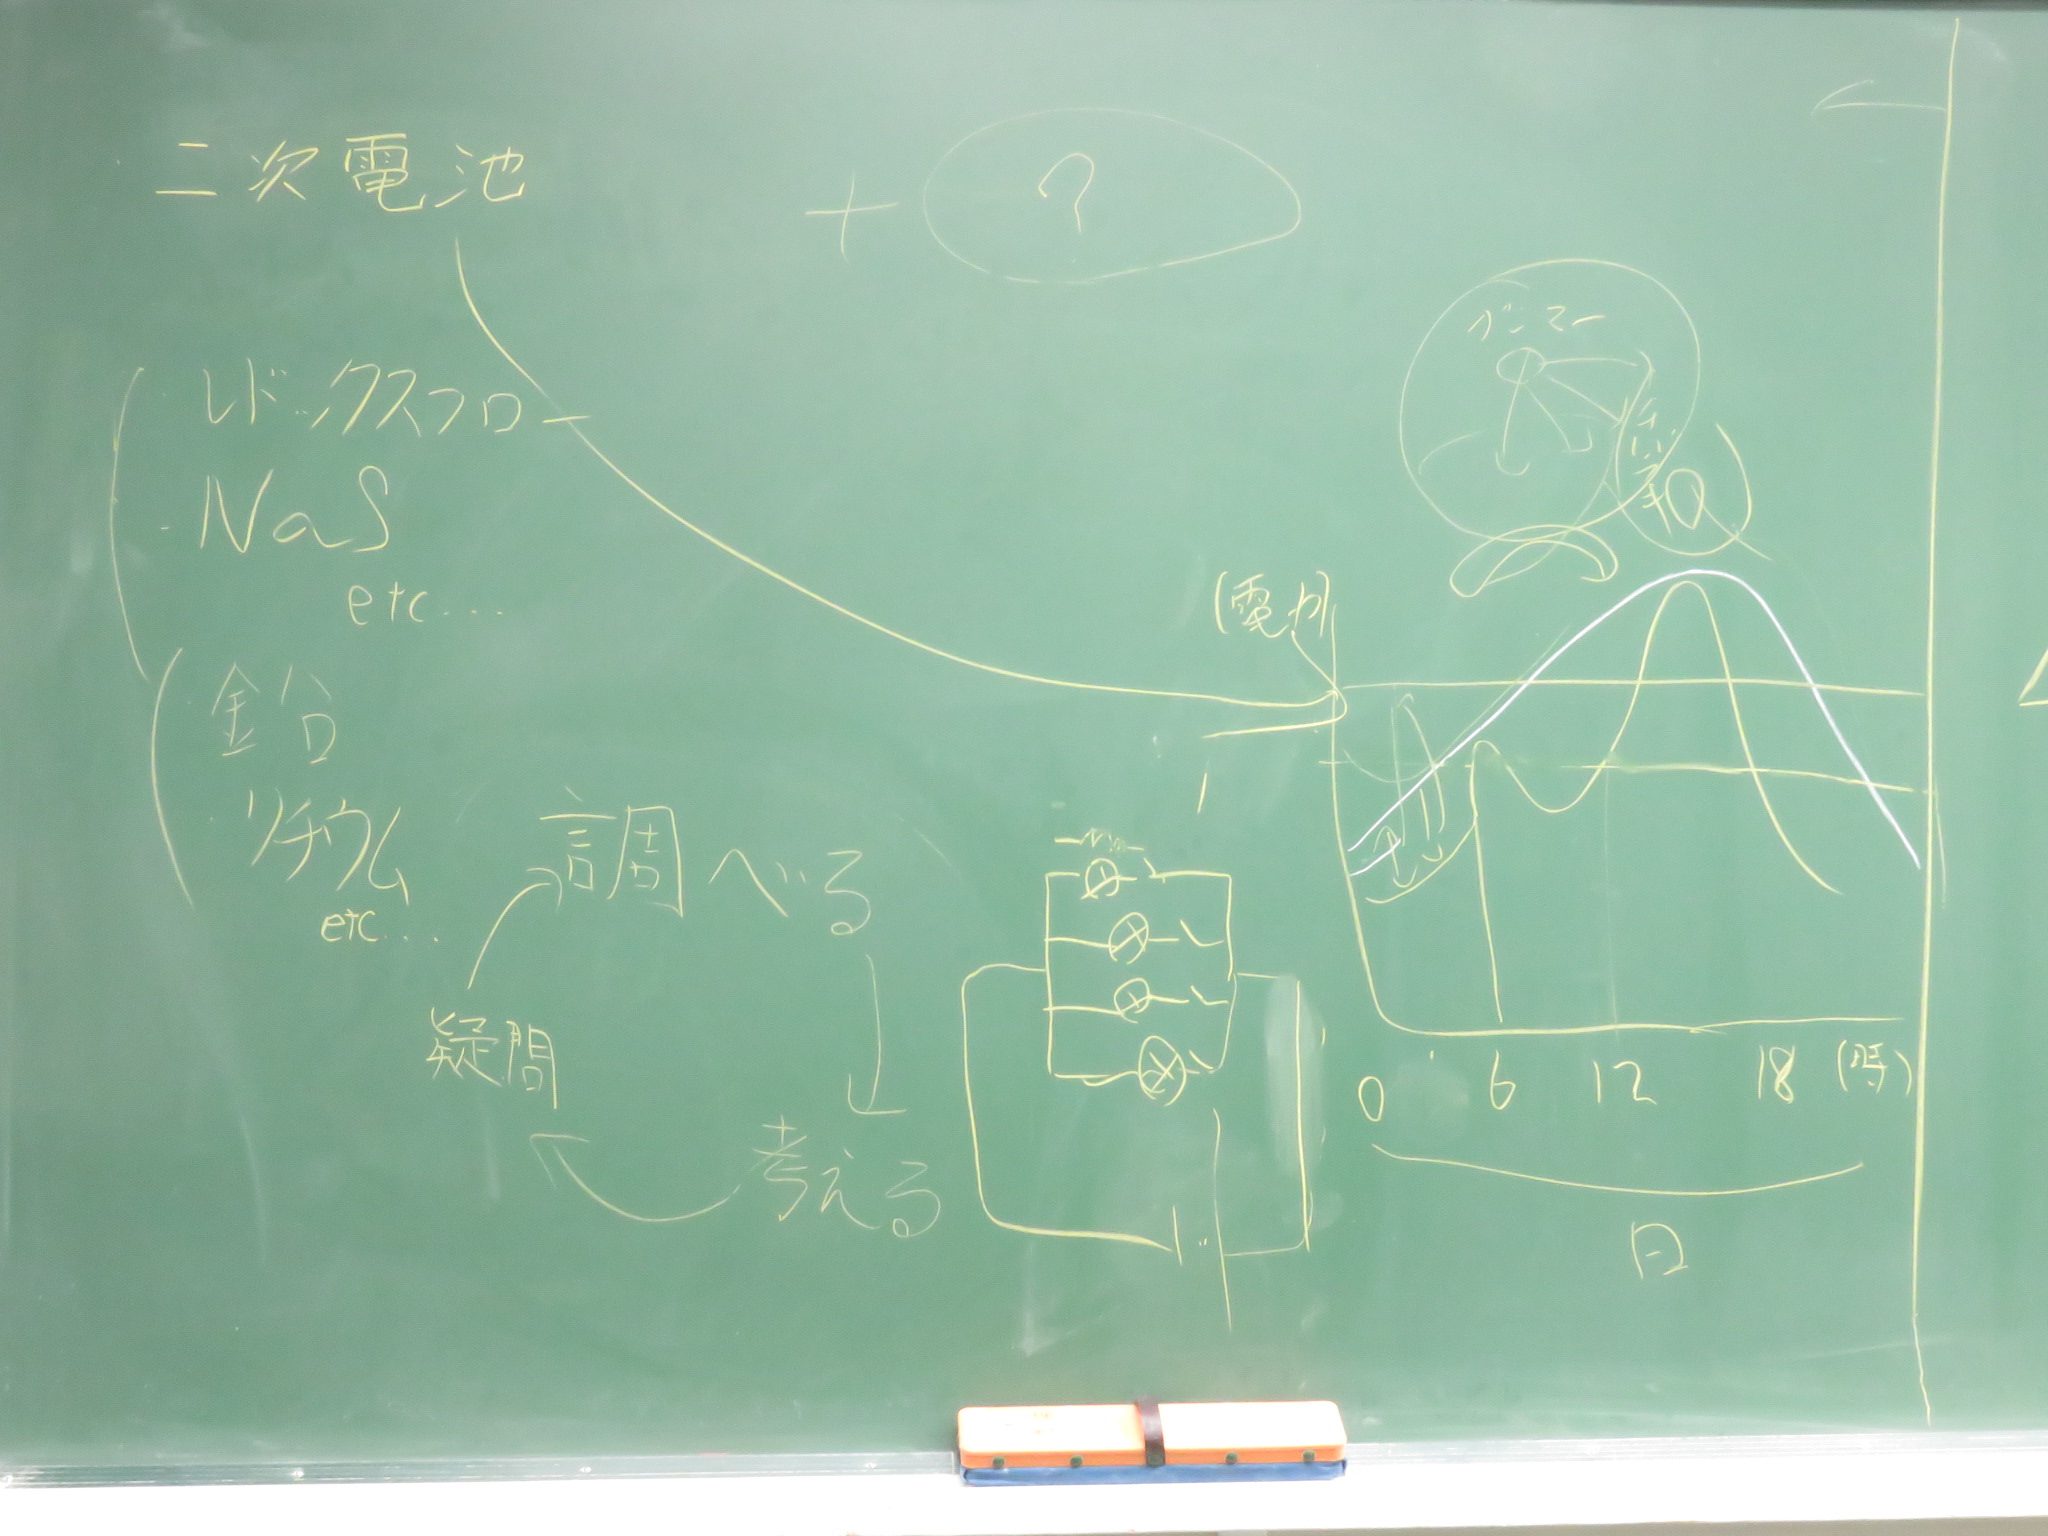 二次電池
+ ?
レドックスフロー
NaS
etc...
鉛
リチウム
etc...
調べる
疑問
考える
(電力)
0 6 12 18 (時)
日